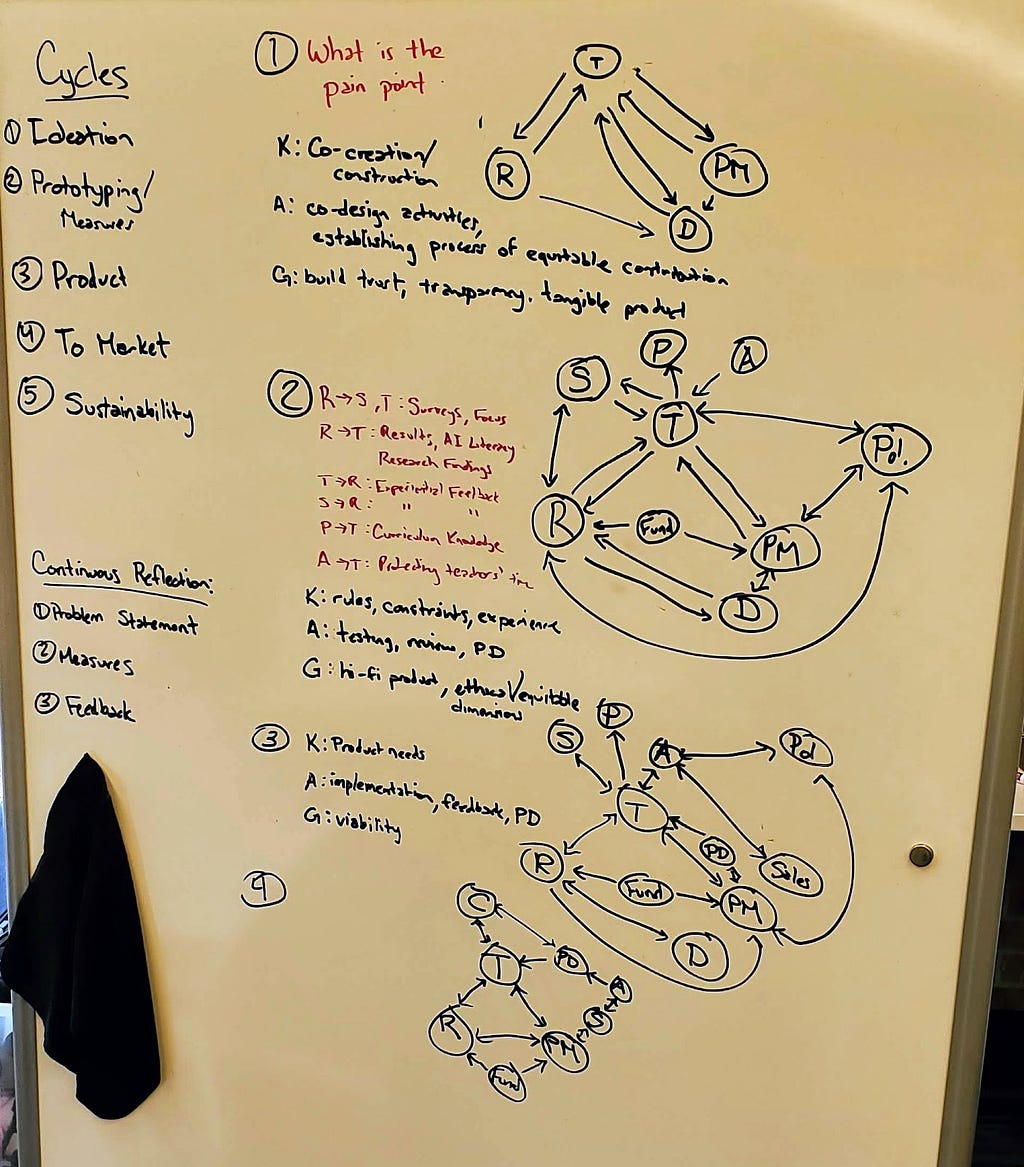 Cycles
① Ideation
② Prototyping/
Measures
③ Product
④ To Market
⑤ Sustainability
Continuous Reflection:
① Problem Statement
② Measures
③ Feedback
① What is the
pain point
K: Co-creation/
construction
A: co-design activities,
establishing process of equitable contribution
G: build trust, transparency, tangible product
T
R
PM
D
② R→S, T: Surveys, Focus
R→T: Results, AI Literacy
Research Findings
T→R: Experiential Feedback
S→R: " "
P→T: Curriculum Knowledge
A→T: Protecting teachers' time
K: rules, constraints, experience
A: testing, review, PD
G: hi-fi product, ethical/equitable
dimensions
P
A
S
T
Pol.
R
Fund
PM
D
③ K: Product needs
A: implementation, feedback, PD
G: viability
P
S
A
Pol
T
PD
Sales
R
Fund
PM
D
④
C
T
PD
A
S
R
PM
Fund